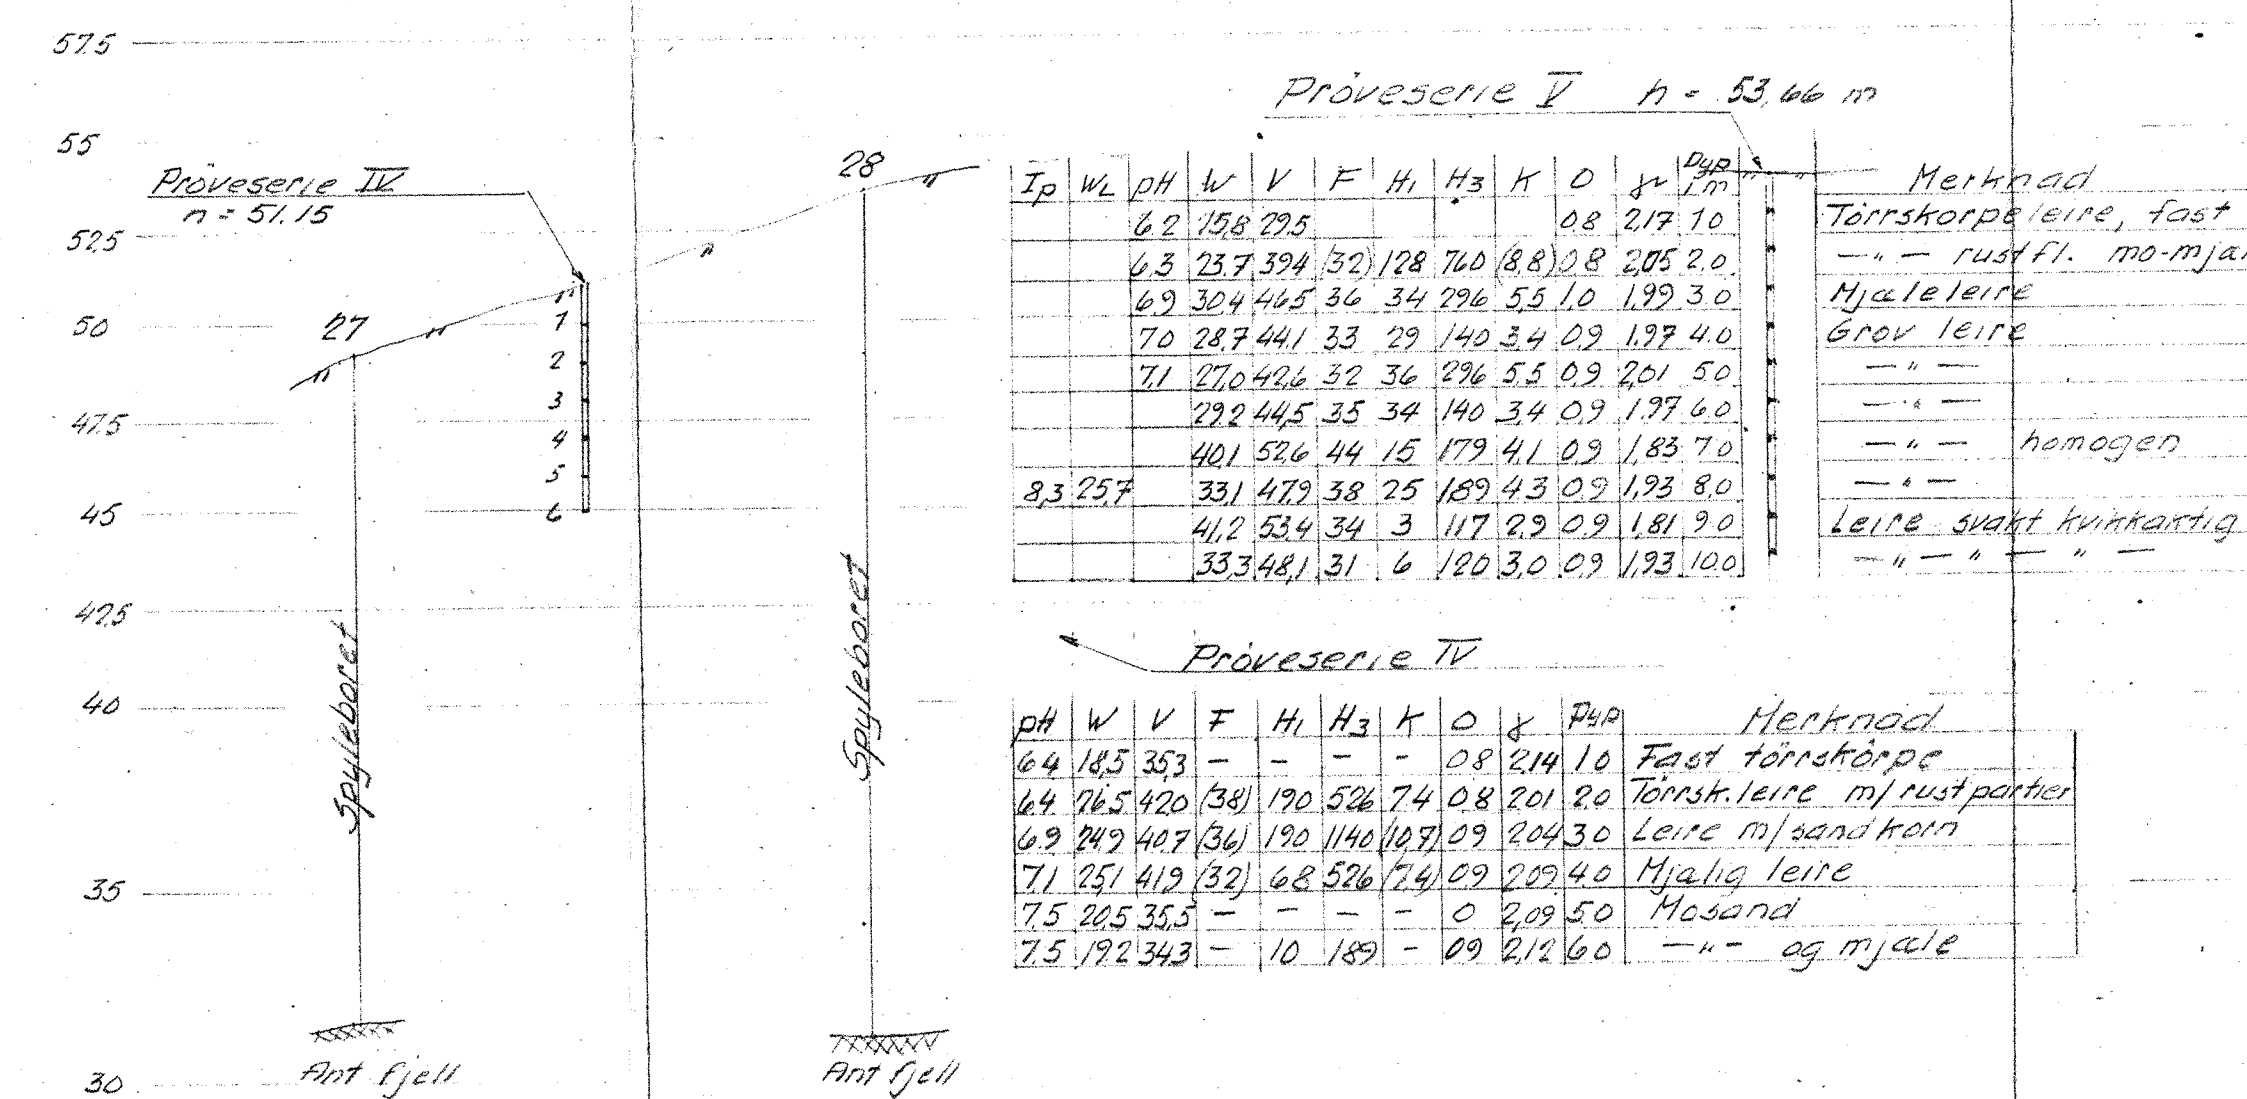 57.5
55
52.5
50
47.5
45
42.5
40
35
30
Pröveserie IV
n = 51.15
27
28
1
2
3
4
5
6
Spyleboret
Spyleboret
Ant fjell
Ant fjell
Pröveserie V h = 53,66 m
Ip WL pH W V F H1 H3 K O γ Dyp i m Merknad
6.2 15,8 29.5 0.8 2,17 1.0 Törrskorpeleire, fast
6,3 23.7 39.4 (32) 128 760 (8.8) 0.8 2,05 2.0 —"— rustfl. mo-mjæl
6.9 30.4 46.5 36 34 296 5,5 1.0 1,99 3.0 Mjæleleire
7.0 28.7 44.1 33 29 140 3.4 0.9 1.97 4.0 Grov leire
7,1 27,0 42,6 32 36 296 5.5 0.9 2,01 5.0 —"—
29.2 44,5 35 34 140 3,4 0.9 1.97 6.0 —"—
40.1 52.6 44 15 179 4.1 0.9 1,83 7.0 —"— homogen
8,3 25,7 33,1 47,9 38 25 189 4.3 0.9 1,93 8.0 —"—
41,2 53.4 34 3 117 2.9 0.9 1,81 9.0 Leire svakt kvikkaktig
33,3 48,1 31 6 120 3,0 0.9 1,93 10.0 —"—"—"—
Pröveserie IV
pH W V F H1 H3 K O γ Dyp Merknad
6.4 18,5 35,3 — — — — 0.8 2,14 1.0 Fast törrskorpe
6.4 26.5 42.0 (38) 190 526 7.4 0.8 2.01 2.0 Törrsk.leire m/ rustpartier
6.9 24.9 40.7 (36) 190 1140 (10,7) 0.9 2.04 3.0 Leire m/ sandkorn
7.1 25,1 41.9 (32) 68 526 (7.4) 0.9 2.09 4.0 Mjælig leire
7.5 20,5 35,5 — — — — 0 2,09 5.0 Mosand
7.5 19.2 34.3 — 10 189 — 0.9 2,12 6.0 —"— og mjæle